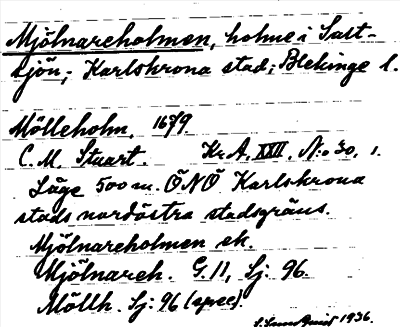 Mjölnareholmen, holme i Salt-
sjön; Karlskrona stad; Blekinge l.
Mölleholm. 1679.
C. M. Stuart. Kr. A. XXII. N:o 30, 1.
Läge 500 m. ÖNÖ Karlskrona
stads nordöstra stadsgräns.
Mjölnareholmen ek.
Mjölnareh. G. 11, Sj: 96.
Möllh. Sj: 96 (spec).
1936.